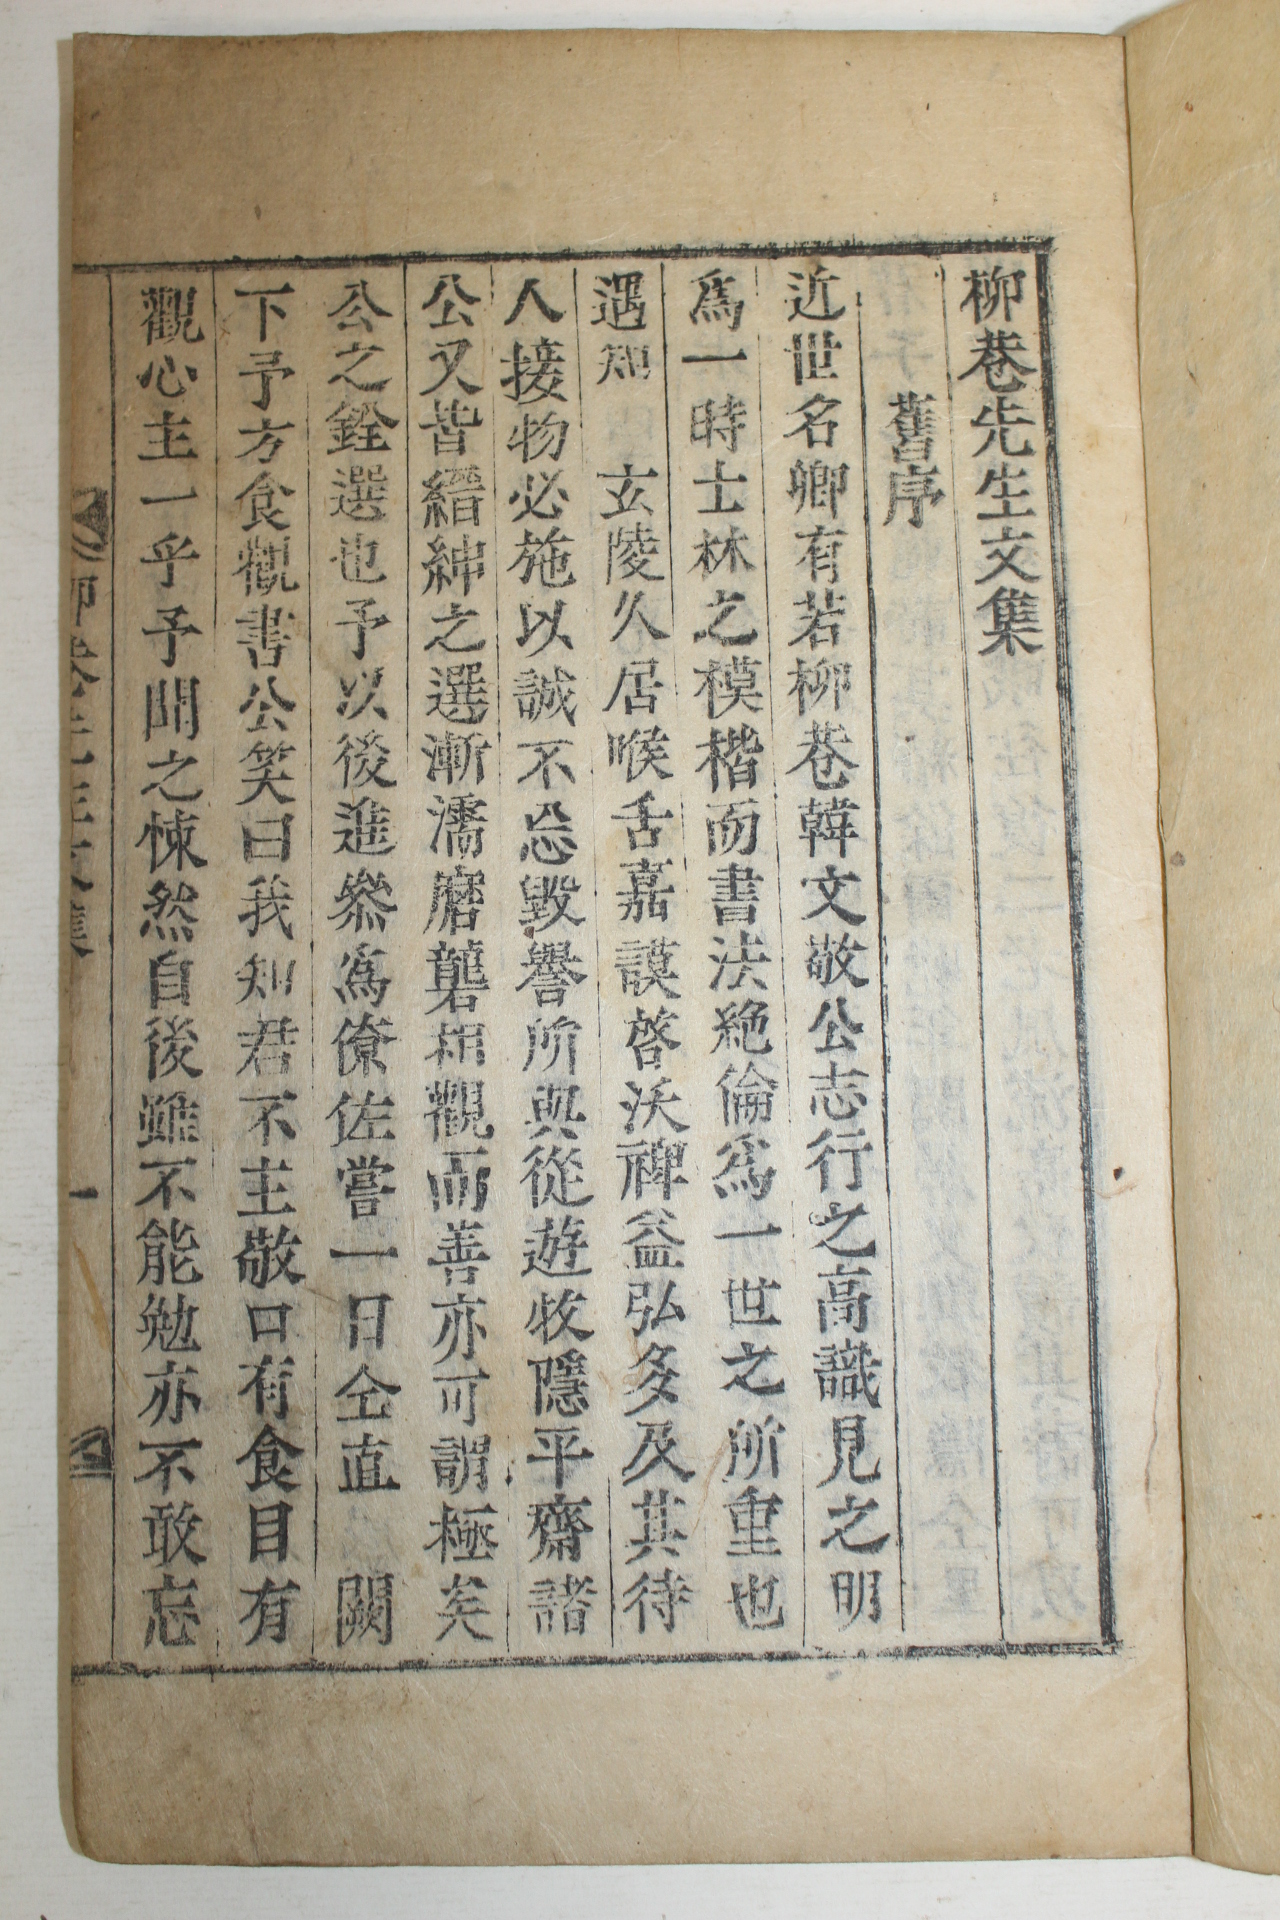 柳巷先生文集
舊序
近世名卿有若柳巷韓文敬公志行之高識見之明
爲一時士林之模楷而書法絶倫爲一世之所重也
遇知 玄陵久居喉舌嘉謨啓沃裨益弘多及其待
人接物必施以誠不忌毁譽所與從遊牧隱平齋諸
公又皆縉紳之選漸濡磨礱相觀而善亦可謂極矣
公之銓選也予以後進叅爲僚佐嘗一日仝直 闕
下予方食觀書公笑曰我知君不主敬口有食目有
觀心主一乎予聞之悚然自後雖不能勉亦不敢忘
一